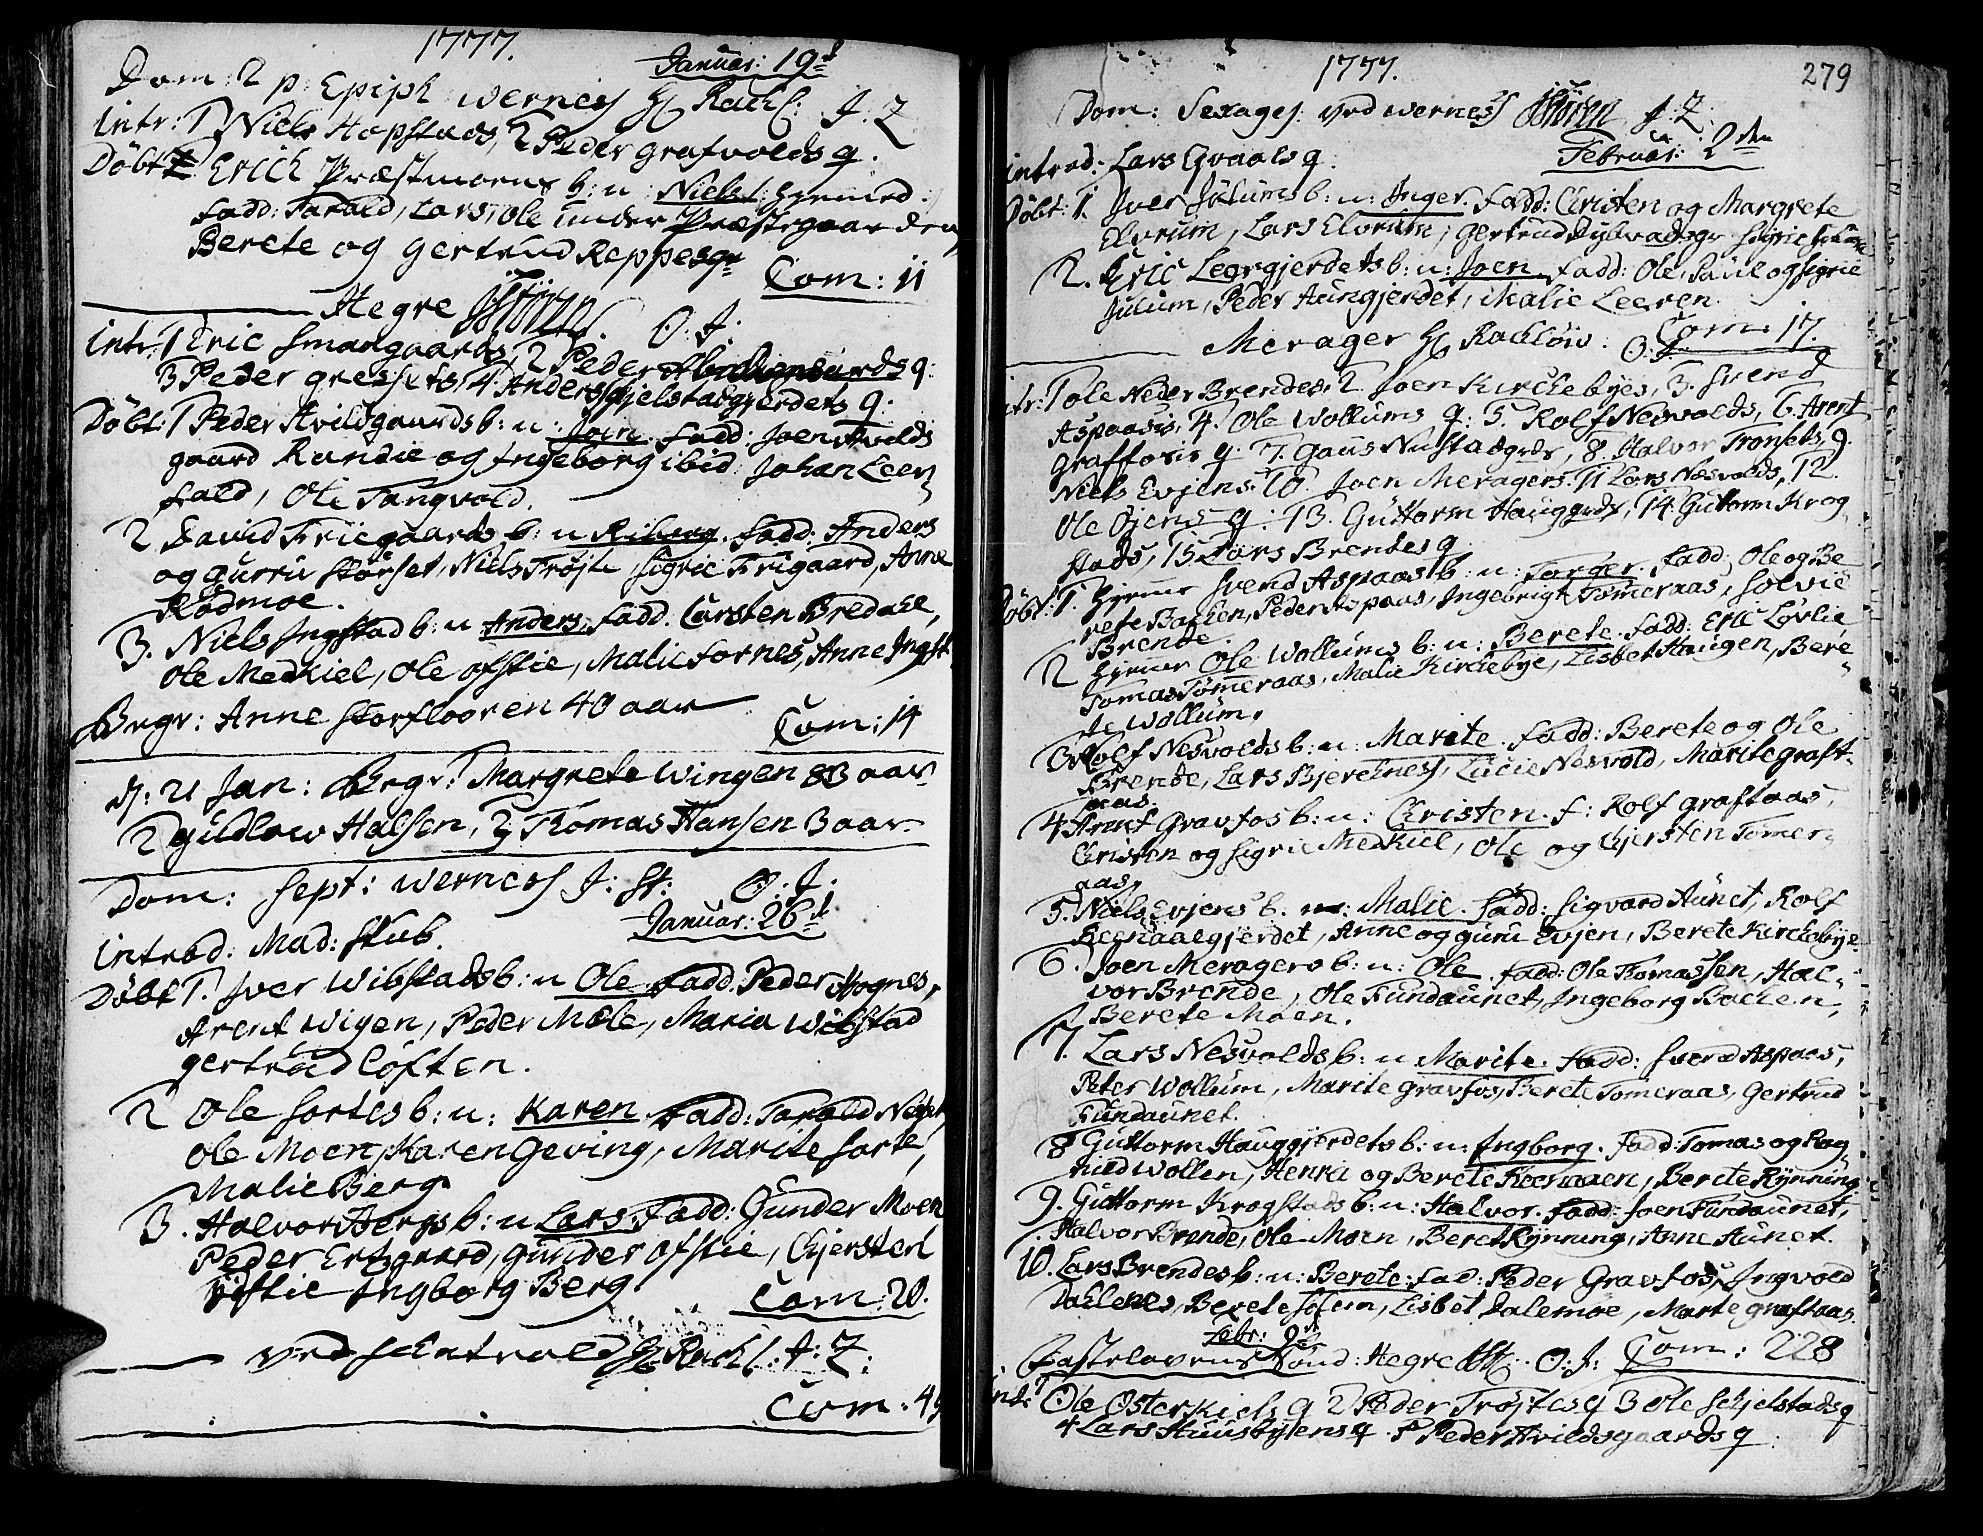 1777.
Januar: 19d
Dom: 2 p: Epiph Wernes H Rachl: J: Z
Intr: 1 Niels Hopstads, 2 Peder Grafvolds q.
Døbt 1 Erich Præstmoens b: u: Niels /: hjemed :/
fadd: Tarald, Lars, Ole under Præstegaarden,
Berete og Gertrud Reppesgr
Com: 11
Hegre Stören. O: J:
Intr: 1 Eric Smaagaards, 2 Peder
3 Peder Gresets 4 Anders Skjelstadgjerdets q.
Døbt: 1 Peder Hvildsgaards b: u: Joen fadd: Joen Hvilds
gaard Randie og Ingeborg ibid: Johan Leer
fald, Ole Tangvold.
2 David Friegaards b: u fadd: Anders
og Gurru Størset, Niels Trøjte, Sigric Frigaard, Anne
Rødmoe.
3. Niels Ingstad b: u Anders, fadd. Carsten Bredahl,
Ole Medkiel, Ole Ofstie, Malie Fornes, Anne Ingst
Begr: Anne Storflooren 40 aar
Com: 14
d: 21 Jan: Begr: Margrete Wingen 83 aar
2 Gudlow Halsen, 3 Thomas Hansen 3 aar
Dom: Sept: Wernes J: St: O: J.
Januar: 26d
Introd: Mad: Stub.
Døbt 1. Iver Wibstads b: u Ole fadd. Peder Hognes,
Arent Wigen, Peder Mæle, Maria Wibstad
Gertrud Løften.
2 Ole Sortes b: u: Karen fadd: Tarald
Ole Moen, Karen Geving, Marite Sorte,
Malie Berg
3. Halvor Bergs b: u Lars fadd: Gunder Moen
Peder Ertzgaard, Gunder Ofstie, Chjersten
Ofstie Ingborg Berg
Com: 20.
ved Schatvold H Rachl: J: Z:
Com: 49
1777.
279
Dom: Sexages: ved Wernes Stören J: Z:
Februar: 2den
Introd: Lars Qvaals q.
Døbt: 1. Iver Julums b: u: Inger. fadd: Christen og Margrete
Elvrum, Lars Elvrum, Gertrud
2. Eric Leergjerdets b: u: Joen fadd: Ole, Paul og Sigrie
Julum, Peder Aungjerdet, Malie Leeren.
Com: 17.
Merager H Rachløw. O:
Intr: 1 Ole Neder Brendes, 2 Joen Kirchebyes, 3. Svend
Aspaasis, 4. Ole Wollums q: 5. Rolf Nesvolds, 6. Arent
Graffosis q. 7. Gaus Nustadgrds, 8. Halvor Tronsets, 9.
Niels Evjens 10. Joen Meragers 11 Lars Nesvolds, 12.
Ole Øjens q: 13. Guttorm Hauggrds, 14. Guttorm Krog
stads, 15 Lars Brendes q.
Døbt: 1. Hjemer Svend Aspaas b: u: Torger. fadd: Ole og Be
rete Bachen, Peder Aspaas, Ingebrigt Tømeraas, Solvie
Brende.
2 Hjemer Ole Wollums b: u: Berete. fadd: Eric Løvlie
Tomas Tømeraas, Malie Kirchebye, Lisbet Haugen, Bere
te Wollum.
3 Rolf Nesvolds b: u: Marite. fadd: Berete og Ole
Brende, Lars Bjerchnes, Lucie Nesvold, Marite Graft
aas.
4 Arent Gravfos b: u: Christen. f: Rolf Graftaas,
Christen og Sigrie Medkiel, Ole og Chjersten Tømer
aas.
5. Niels Evjens b. u: Malie. fadd: Sigvard Aunet, Rolf
Reenaaegjerdet, Anne og Guru Evjen, Berete Kirchebye.
6. Joen Meragers b: u: Ole. fadd: Ole Thomassen, Hal-
vor Brende, Ole Fundaunet, Ingeborg Bachen,
Berete Moen.
7. Lars Nesvolds b: u Marite. fadd: Svend Aspaas,
Peter Wollum, Marite Gravfos, Berete Tømeraas, Gertrud
Fundaunet.
8 Guttorm Hauggjerdets b: u: Ingborg. fadd: Tomas og Rag
nild Wollen, Henric og Berete, Berete Rynning
9. Guttorm Krogstads b: u: Halvor. fadd: Joen Fundaunet,
Halvor Brende, Ole Moen, Beret Rynning, Anne Aunet.
10. Lars Brendes b: u: Berete: fad: Peder Gravfos, Ingvold
Dahlenes, Berete Solem, Lisbet Dalemoe, Marte Graftaas.
Febr: 9d
Fastelavens Sønd: Hegre St: O: J: Com: 228
Intr: 1 Ole Osterkiels q 2 Peder Trøjtes q 3 Ole Schjelstads q
4 Lars Huusbyens q. 5 Peder Hvildsgaards q.